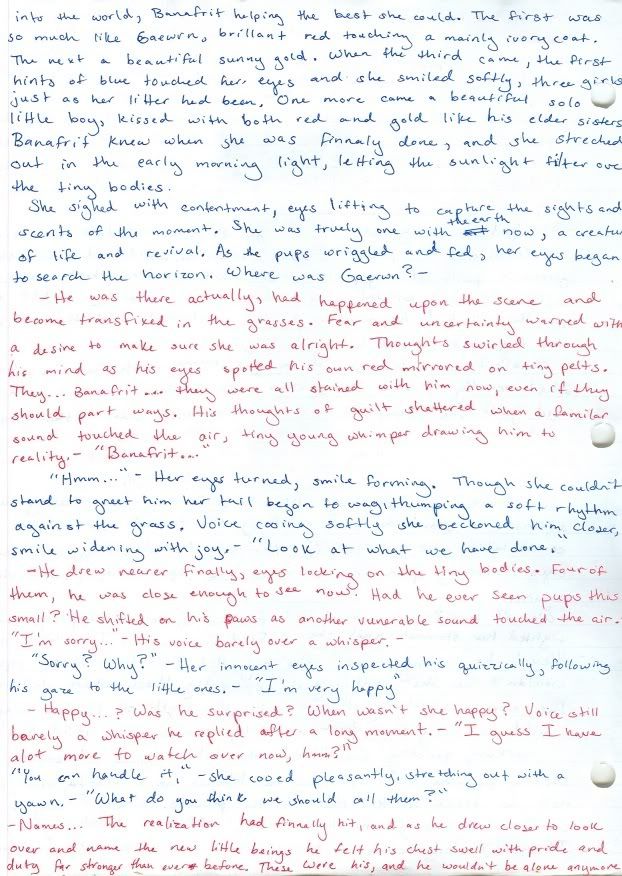 into the world, Banafrit helping the best she could. The first was
so much like Gaewrn, brillant red touching a mainly ivory coat.
The next a beautiful sunny gold. When the third came, the first
hints of blue touched her eyes and she smiled softly, three girls
just as her litter had been. One more came a beautiful solo
little boy, kissed with both red and gold like his elder sisters
Banafrit knew when she was finnaly done, and she streched
out in the early morning light, letting the sunlight filter ove
the tiny bodies.
She sighed with contentment, eyes lifting to capture the sights and
scents of the moment. She was truely one with the earth now, a creatu
of life and revival. As the pups wriggled and fed, her eyes began
to search the horizon. Where was Gaerwn? -
- He was there actually, had happened upon the scene and
become transfixed in the grasses. Fear and uncertainty warred with
a desire to make sure she was alright. Thoughts swirled through
his mind as his eyes spotted his own red mirrored on tiny pelts.
They... Banafrit... they were all stained with him now, even if they
should part ways. His thoughts of guilt shattered when a familar
sound touched the air, tiny young whimper drawing him to
reality. - "Banafrit..."
"Hmm..." - Her eyes turned, smile forming. Though she couldn't
stand to greet him her tail began to wag, thumping a soft rhythm
against the grass. Voice cooing softly she beckoned him closer,
smile widening with joy. - "Look at what we have done."
- He drew nearer finally, eyes locking on the tiny bodies. Four of
them, he was close enough to see now. Had he ever seen pups this
small? He shifted on his paws as another vunerable sound touched the air.
"I'm sorry..." - His voice barely over a whisper. -
"Sorry? Why?" - Her innocent eyes inspected his quizzically, following
his gaze to the little ones. - "I'm very happy"
- Happy...? Was he surprised? When wasn't she happy? Voice still
barely a whisper he replied after a long moment. - "I guess I have
alot more to watch over now, hmm?"
"You can handle it," - she cooed pleasantly, stretching out with a
yawn. - "What do you think we should call them?"
- Names... The realization had finnally hit, and as he drew closer to look
over and name the new little beings he felt his chest swell with pride and
duty far stronger than ever before. These were his, and he wouldn't be alone anymore